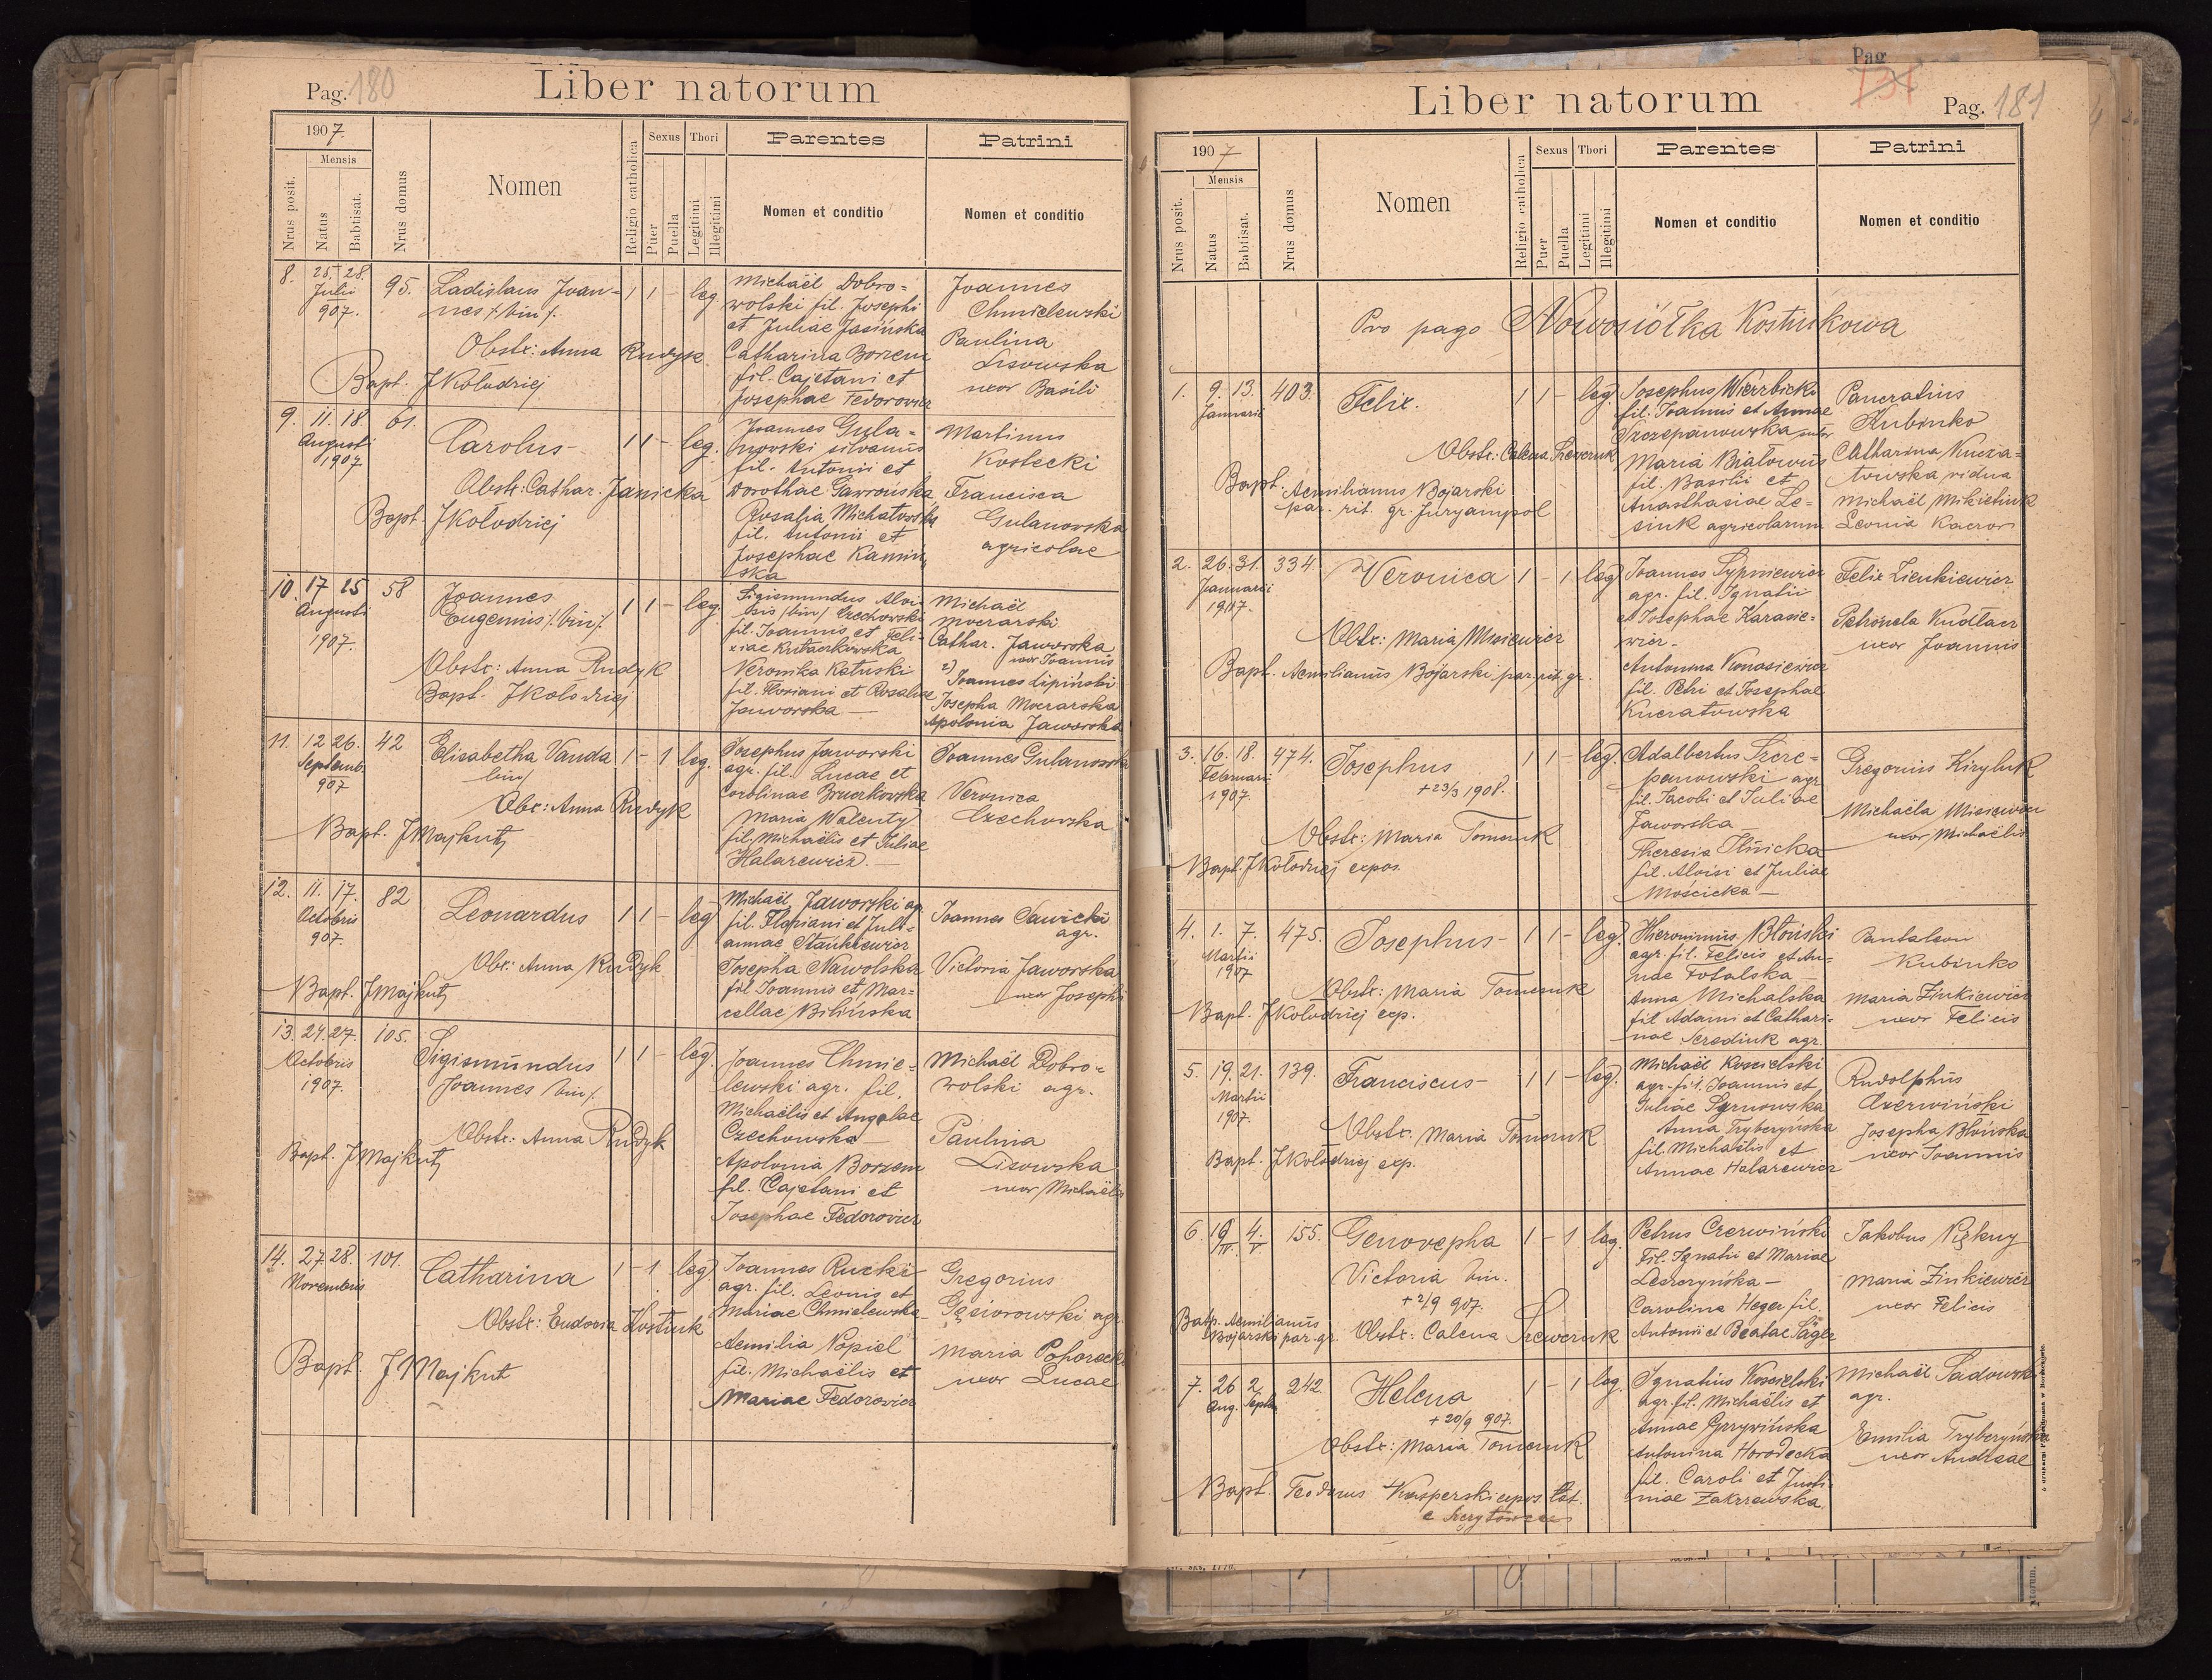 Pag. 180
Liber natorum
1907.
Nrus posit.
Mensis
Natus
Babtisat.
Nrus domus
Nomen
Religio catholica
Sexus
Puer
Puella
Thori
Legitimi
Illegitimi
Parentes
Nomen et conditio
Patrini
Nomen et conditio
8. 25. 28. Julii 907. 95.
Ladislaus Joan-
nes /: bin /:
1 1 - leg.
Obstr: Anna Rudyk
Bapt. J Kolodziej
Michaël Dobro-
wolski fil. Josephi
et Juliae Jasińska
Catharina Borzem
fil. Cajetani et
Josephae Fedorowicz
Joannes
Chmielewski
Paulina
Lisowska
uxor Basili
9. 11. 18. Augusti 1907 61.
Carolus
1 1 - leg.
Obstr: Cathar. Janicka
Bapt. J Kolodziej
Joannes Gula-
nowski silvanus
fil. Antonii et
Dorothae Gawrońska
Rosalia Michałowska
fil. Antonii et
Josephae Kamiń
ska
Martinus
Kostecki
Francisca
Gulanowska
agricolae
10. 17 25 Augusti 1907. 58
Joannes
Eugenius /: bin /:
1 1 - leg.
Obstr: Anna Rudyk
Bapt. J Kolodziej
Sigismundus Aloi-
sis /bin/ Czechowski
fil. Joannis et Feli-
ciae
Veronika Kałuski
fil. Floriani et Rosaliae
Jaworska
Michaël
Moczarski
Cathar. Jaworska
uxor Joannis
2) Joannes Lipiński
Josepha Moczarska
Apolonia Jaworska
11. 12 26. Septemb. 907 42
Elisabetha Vanda
bin/
1 - 1 leg.
Obs: Anna Rudyk
Bapt. J Majkut
Josephus Jaworski
agr. fil. Lucae et
Carolinae
Maria Walenty
fil. Michaëlis et Juliae
Halarewicz.
Joannes Gulanowski
Veronica
Czechowska
12. 11. 17. Octobris 907. 82
Leonardus
1 1 - leg
Obs: Anna Rudyk
Bapt. J Majkut
Michaël Jaworski agr.
fil. Floriani et Juli-
annae Stankiewicz
Josepha Nawolska
fil Joannis et Mar=
cellae Bilińska
Joannes Sawicki
agr.
Victoria Jaworska
uxor Josephi
13. 24. 27. Octobris 1907. 105.
Sigismundus
Joannes bin/.
1 1 - leg
Obstr: Anna Rudyk
Bapt. J Majkut
Joannes Chmie-
lewski agr. fil.
Michaëlis et Angelae
Czechowska
Apolonia Borzem
fil. Cajetani et
Josephae Fedorowicz
Michaël Dobro-
wolski agr.
Paulina
Lisowska
uxor Michaëlis
14. 27 28. Novembris 101.
Catharina
1 - 1 leg
Obstr: Eudoxia Kostiuk
Bapt. J Majkut
Joannes Rucki
agr. fil. Leonis et
Mariae Chmielewska
Aemilia Popiel
fil. Michaëlis et
Mariae Fedorowicz
Gregorius
Gąsiorowski agr.
Maria Pohorecki
uxor Lucae
Pag
731
Liber natorum
Pag. 181
1907
Nrus posit.
Mensis
Natus
Babtisat.
Nrus domus
Nomen
Religio catholica
Sexus
Puer
Puella
Thori
Legitimi
Illegitimi
Parentes
Nomen et conditio
Patrini
Nomen et conditio
Pro pago Nowosiółka Kostiukowa
1. 9. 13. Januarii 403.
Felix.
1 1 - leg.
Obstr: Calena Szewczuk
Bapt. Aemilianus Bojarski
par. rit. gr. Juryampol
Josephus Wierzbicki
fil. Joannis et Annae
Szczepanowska
Maria Białowus
fil. Basilii et
Anasthasiae Le-
siuk agricolarum
Pancratius
Kubinko
Catharina Kucza-
towska vidua
Michaël Mikietiuk
Leonia Kaczor
2. 26. 31. Januarii 1907. 334.
Veronica
1 - 1 leg
Obstr: Maria Misiewicz
Bapt. Aemilianus Bojarski par. rit. gr.
Joannes Sypniewicz
agr. fil. Ignatii
et Josephae Karasie-
wicz-
Antonina
fil. Petri et Josephae
Kuczatowska
Felix Zienkiewicz
Petronela Kudłacz
uxor Joannis
3. 16. 18. Februarii 1907. 474.
Josephus
+ 23/3 1908.
1 1 - leg.
Obstr: Maria Tomczuk
Bapt. J Kolodziej expos.
Adalbertus Szcze-
panowski agr
fil. Jacobi et Juliae
Jaworska
Theresia Ilnicka
fil. Aloisi et Juliae
Mościcka
Gregorius Kiryluk
Michaëla Misiewicz
uxor Michaëlis
4. 1. 7. Martii 1907 475.
Josephus
1 1 - leg.
Obstr: Maria Tomczuk
Bapt. J Kolodziej exp.
Hieronimus Błoński
agr. fil. Felicis et An-
nae Fotalska
Anna Michalska
fil Adami et Cathari-
nae Serediuk agr.
Pantaleon
Kubinko
Maria Zinkiewicz
uxor Felicis
5. 19. 21. Martii 1907. 139.
Franciscus
1 1 - leg.
Obstr. Maria Tomczuk
Bapt. J Kolodziej exp.
Michaël Koscielski
agr. fil. Joannis et
Juliae
Anna Trybezyńska
fil. Michaëlis et
Annae Halarewicz
Rudolphus
Czerwiński
Josepha Błońska
uxor Joannis
6. 19/IV. 4./V. 155.
Genovepha
Victoria bin.
+ 2/9 907.
1 - 1 leg.
Bapt. Aemilianus
Bojarski par. gr.
Obstr: Calena Szewczuk
Petrus Czerwiński
Fil. Ignatii et Mariae
Leszczyńska
Carolina Heger fil.
Antonii et Beatae Jäger
Jakobus Piękny
Maria Zinkiewicz
uxor Felicis
7. 26 Aug. 2 Septbr. 242.
Helena
+ 20/9 907.
1 - 1 leg.
Obstr: Maria Tomczuk
Bapt. Teodorus Kasperski expos. lat.
Ignatius Koscielski
agr. fil. Michaëlis et
Annae
Antonina Horodecka
fil. Caroli et Justi-
niae Zakrzewska.
Michaël Sadowski
agr.
Emilia Trybezyńska
uxor Andreae